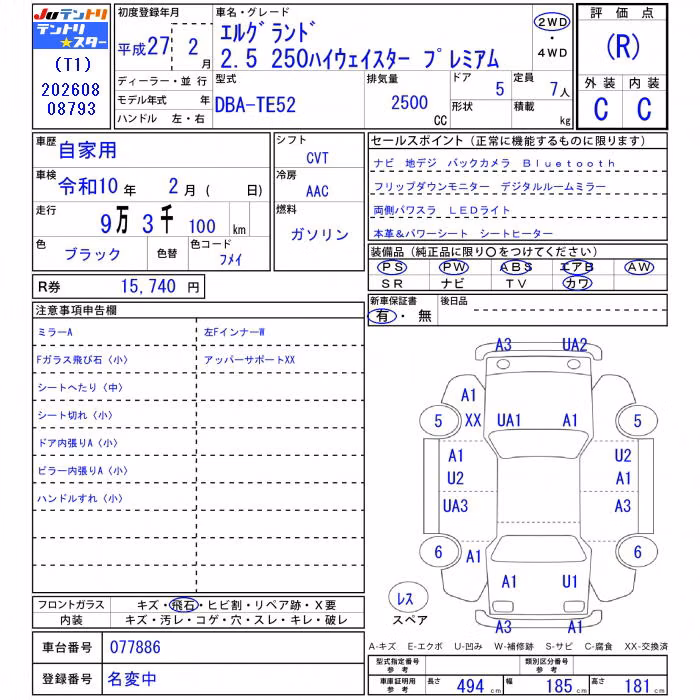 Juテントリ
テントリ★スター
(T1)
202608
08793
初度登録年月
平成27年 2月
ディーラー・並行
モデル年式 年
ハンドル 左・右
車名・グレード
エルグランド
2.5 250ハイウェイスター プレミアム
2WD
・
4WD
型式
DBA-TE52
排気量
2500
CC
ドア
5
形状
定員
7人
積載
kg
評価点
(R)
外装 内装
C C
車歴
自家用
車検
令和10年 2月( 日)
走行
9万 3千 100 km
色
ブラック
色替
色コード
フメイ
シフト
CVT
冷房
AAC
燃料
ガソリン
セールスポイント(正常に機能するものに限ります)
ナビ 地デジ バックカメラ Bluetooth
フリップダウンモニター デジタルルームミラー
両側パワスラ LEDライト
本革&パワーシート シートヒーター
装備品(純正品に限り〇をつけてください)
PS PW ABS エアB AW
SR ナビ TV カワ
R券 15,740 円
新車保証書
有・無
後日品
注意事項申告欄
ミラーA 左FインナーW
Fガラス飛び石〈小〉 アッパーサポートXX
シートへたり〈中〉
シート切れ〈小〉
ドア内張りA〈小〉
ピラー内張りA〈小〉
ハンドルすれ〈小〉
A3 UA2
A1
5 XX UA1 A1 5
A1 U2
U2 A1
UA3 A3
6 A1 6
A1 U1
レス
スペア
A3 A1
フロントガラス キズ・飛石・ヒビ割・リペア跡・X要
内装 キズ・汚レ・コゲ・穴・スレ・キレ・破レ
車台番号 077886
登録番号 名変中
A-キズ E-エクボ U-凹み W-補修跡 S-サビ C-腐食 XX-交換済
型式指定番号
参考
類別区分番号
参考
車庫証明用
参考
長さ 494 cm 幅 185 cm 高さ 181 cm